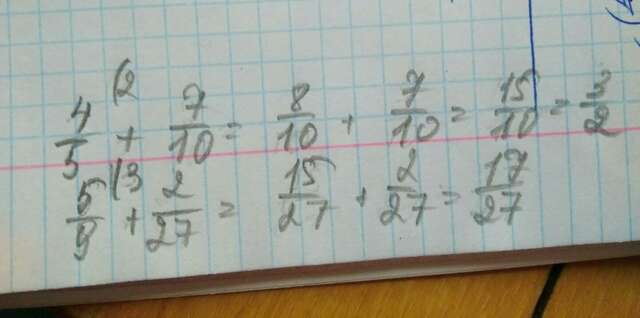 4/5 (2 + 7/10 = 8/10 + 7/10 = 15/10 = 3/2
5/9 (3 + 2/27 = 15/27 + 2/27 = 17/27